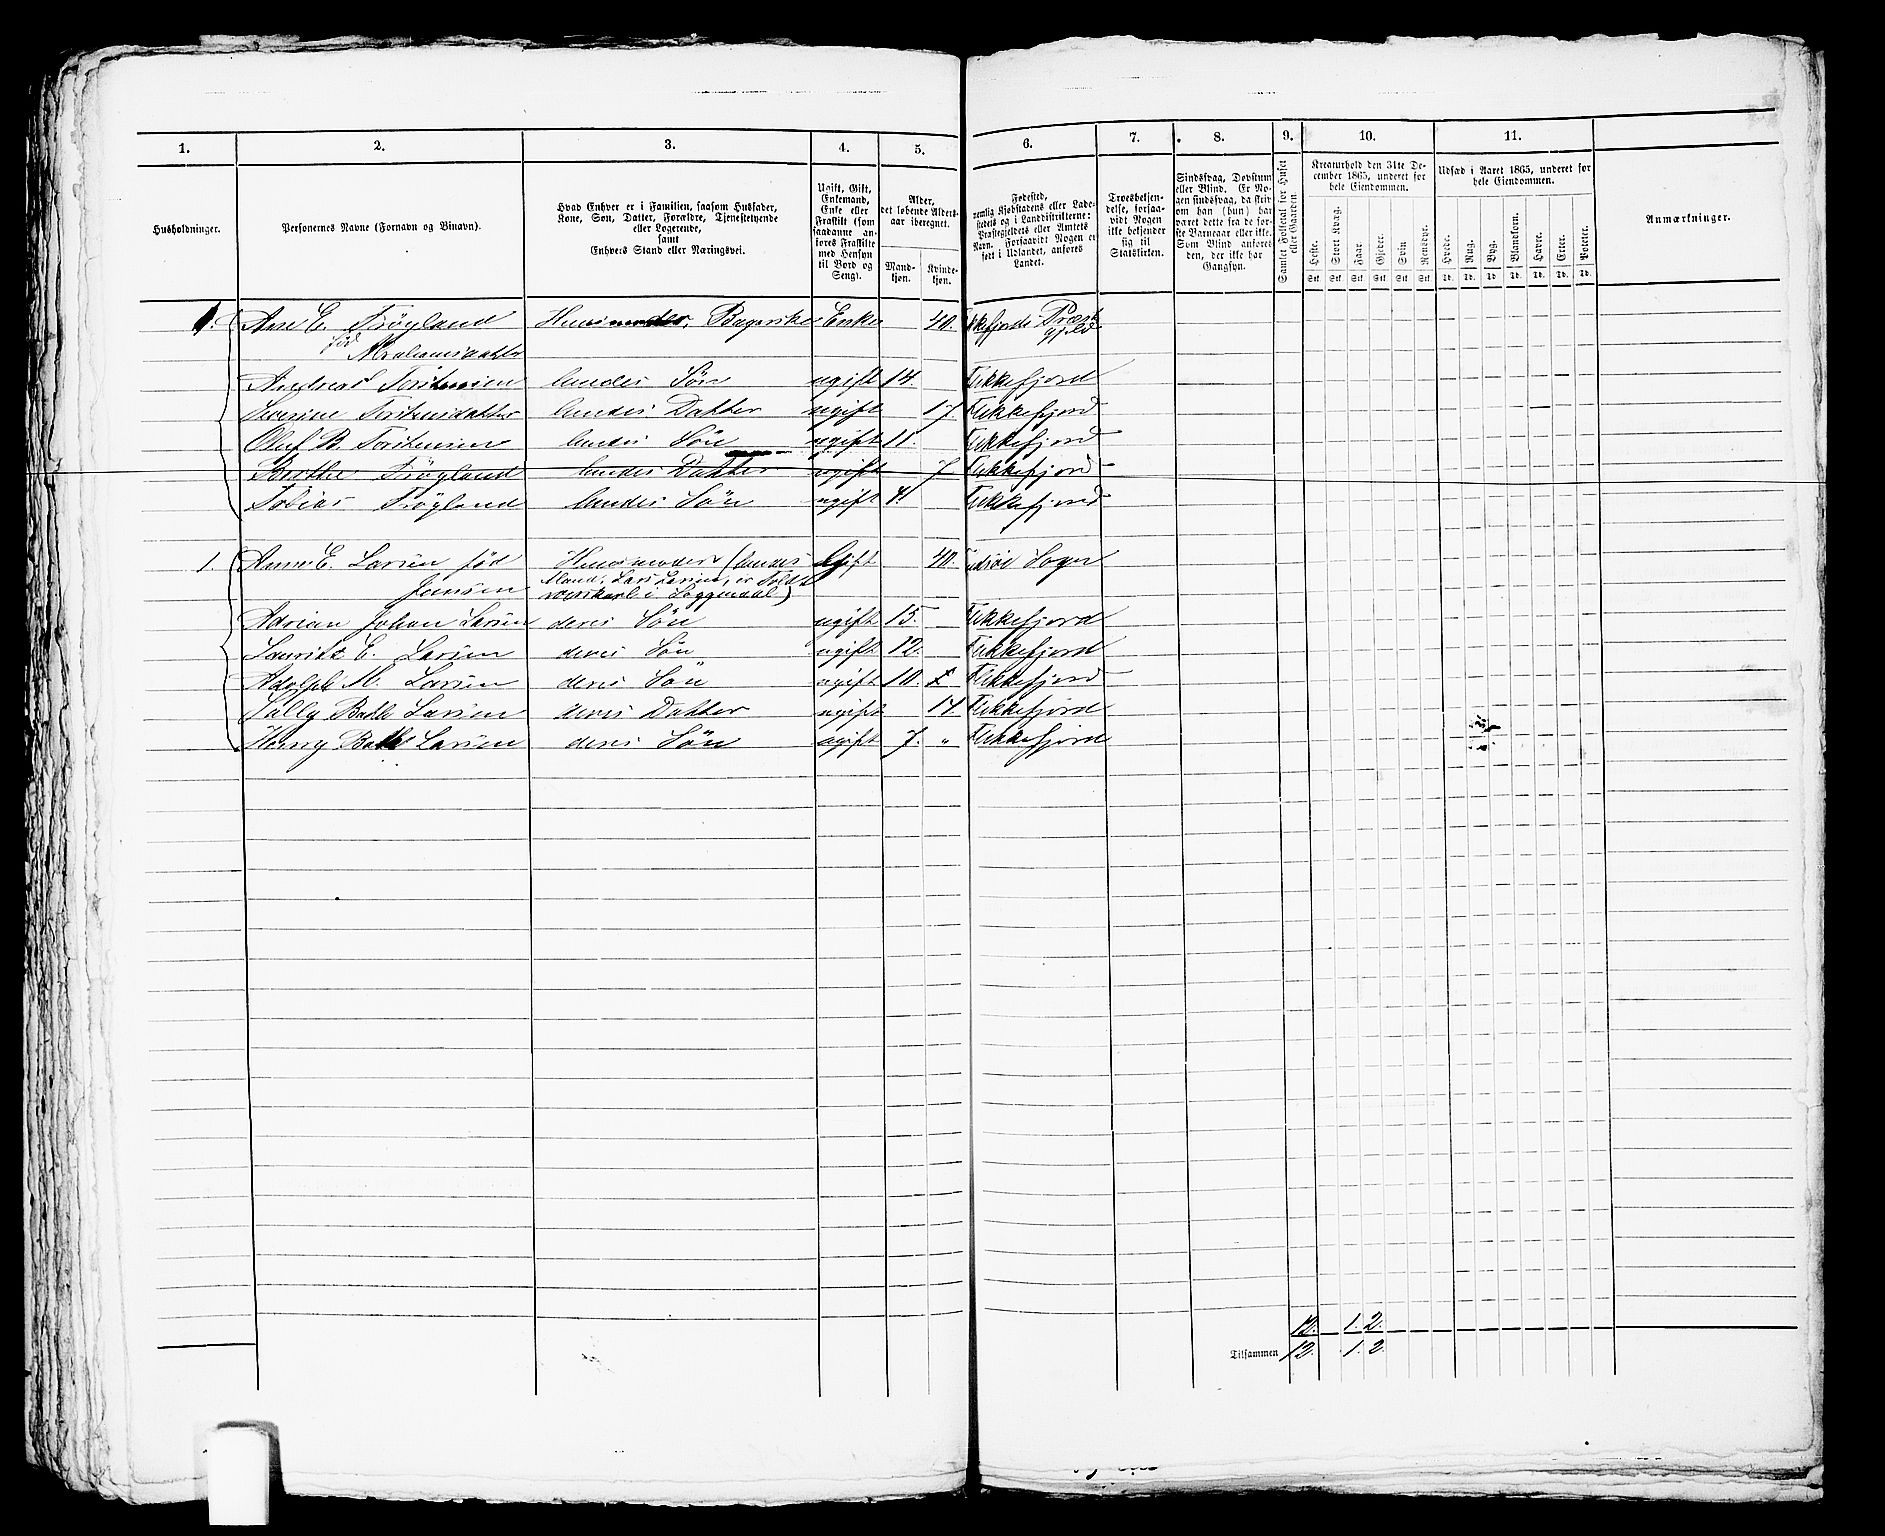 1. 2. 3. 4. 5. 6. 7. 8. 9. 10. 11.
Husholdninger.
Personernes Navne (Fornavn og Binavn).
Hvad Enhver er i Familien, saasom Husfader,
Kone, Søn, Datter, Forældre, Tjenestetyende
eller Logerende,
samt
Enhvers Stand eller Næringsvei.
Ugift, Gift,
Enkemand,
Enke eller
Fraskilt (som
saadanne an-
føres Fraskilte
med Hensyn
til Bord og
Seng).
Alder,
det løbende Alders-
aar iberegnet.
Mand-
kjøn.
Kvinde-
kjøn.
Fødested,
nemlig Kjøbstadens eller Lade-
stedets og i Landdistrikterne:
Præstegjeldets eller Amtets
Navn. Forsaavidt Nogen er
født i Udlandet, anføres
Landet.
Troesbekjen-
delse, forsaa-
vidt Nogen
ikke bekjender
sig til
Statskirken.
Sindssvag, Døvstum
eller Blind. Er No-
gen sindssvag, da skri-
ves om han (hun) har
været dette fra de før-
ste Barneaar eller ikke.
Som Blind anføres
den, der ikke har
Gangsyn.
Samlet Folketal for Huset
eller Gaarden.
Kreaturhold den 31te De-
cember 1865, underet for
hele Eiendommen.
Heste. Stort Kvæg. Faar. Gjeder. Svin Rensdyr.
Stk. Stk. Stk. Stk. Stk Stk.
Udsæd i Aaret 1865, underet for
hele Eiendommen.
Hvede. Rug. Byg. Blandkorn. Havre. Erter. Poteter.
Td. Td. Td Td. Td. Td. Td.
Anmærkninger.
1. Ane E. Trøyland Huusmoder, Enke 40. Præste
født gjeld
Abrahamsdatter
Andreas Søn ugift 14. Flekkefjord
Severine Datter ugift 17. Flekkefjord
Oluf B. Søn ugift 11. Flekkefjord
Trøyland Datter ugift 7 Flekkefjord
Tobias Trøyland Søn ugift 4. Flekkefjord
1. Anne E. Larsen fød Huusmoder (hendes Gift 40. Sogn
Jansen Mand, Lars Larsen, er Told-
i Soggendal)
Adrian Johan Larsen deres Søn ugift 15. Flekkefjord
Lauritz E. Larsen deres Søn ugift 12. Flekkefjord
Adolph M. Larsen deres Søn ugift 10. Flekkefjord
Larsen deres Datter ugift 14. Flekkefjord
Larsen deres Søn ugift 7. „ Flekkefjord
12. 1. 2.
Tilsammen 12. 1. 2